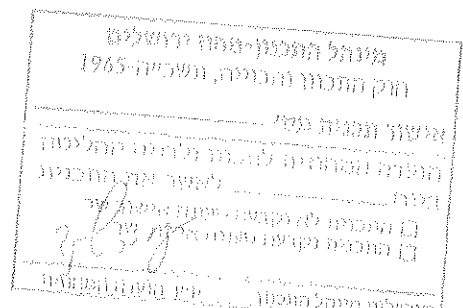 מינהל התכנון-מחוז ירושלים
חוק התכנון והבנייה, תשכ״ה-1965
אישור תכנית מס׳
הועדה המחוזית לתכנון ולבניה החליטה
ביום לאשר את התכנית
התכנית לא נקבעה טעונה אישור שר
התכנית נקבעה טעונה אישור שר
מינהל התכנון יו״ר הועדה המחוזית